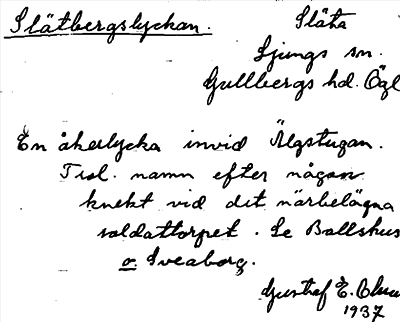 Slätbergslyckan.
Släta
Ljungs sn.
Gullbergs hd. Ögl
En åkerlycka invid Älgstugan.
Trol. namn efter någon
knekt vid det närbelägna
soldattorpet. Se Ballshus
o. Sveaborg.
Gustaf E. Blu
1937